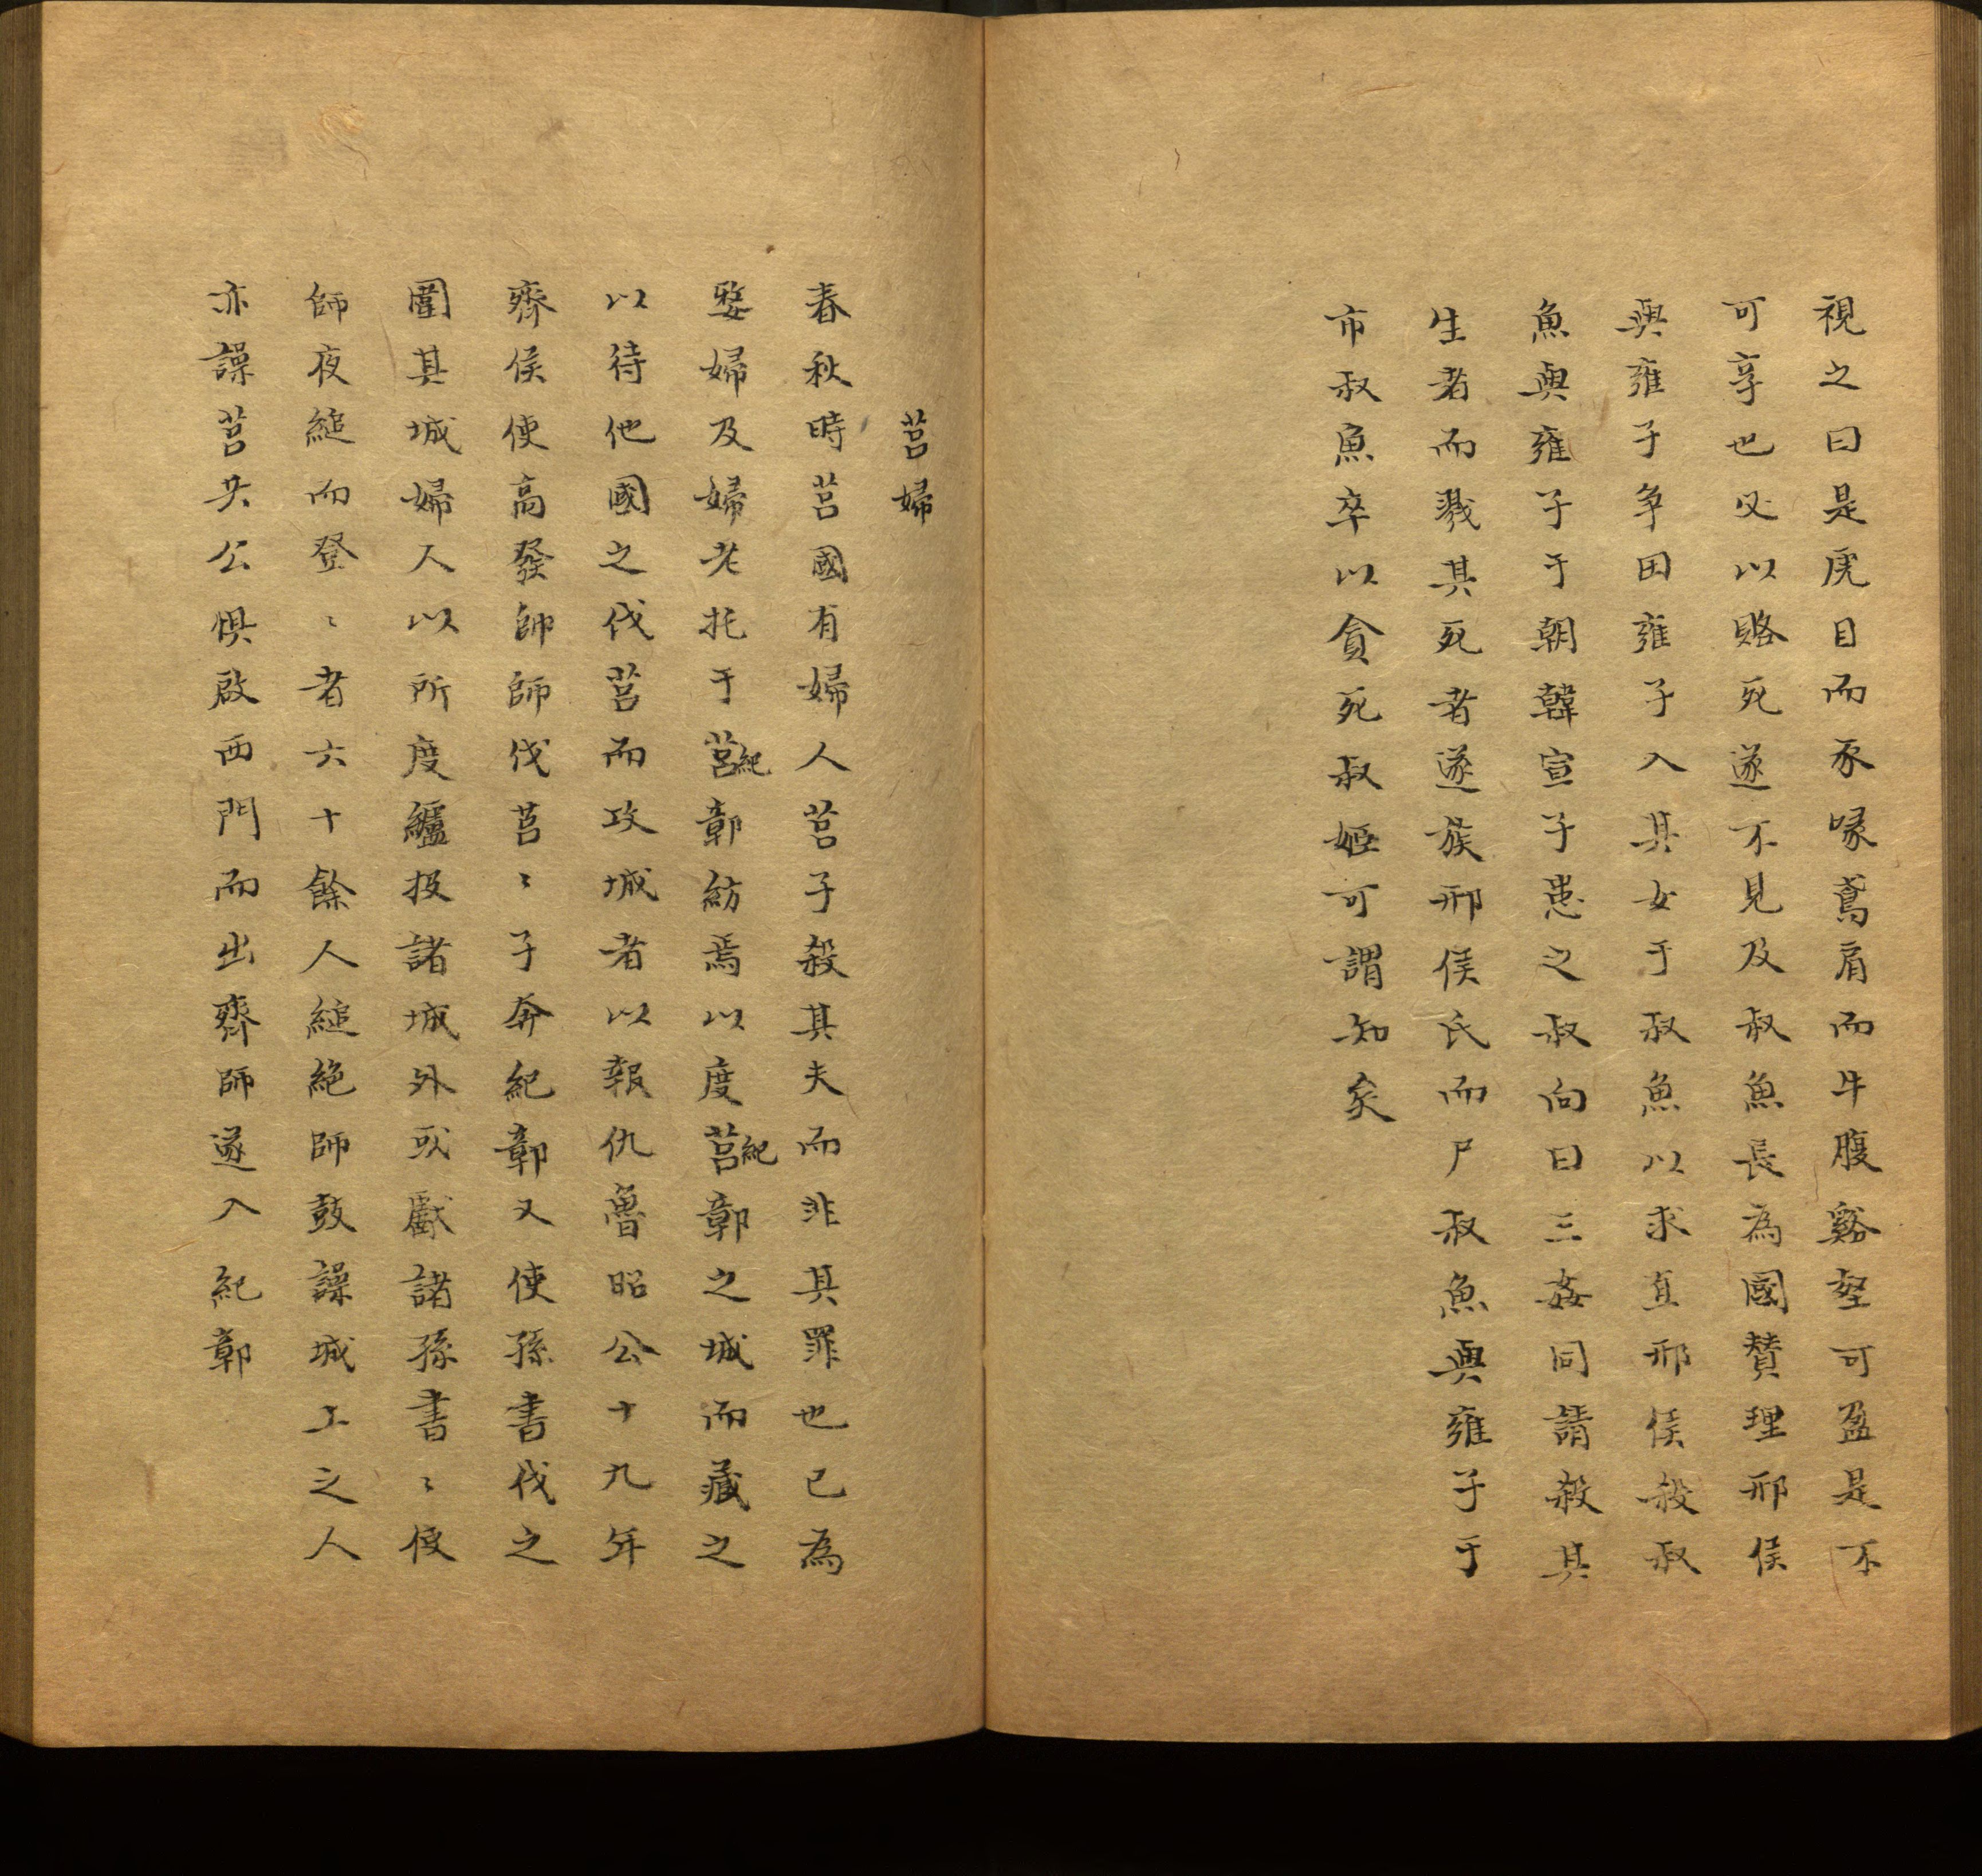 視之曰是虎目而豕喙鳶肩而牛腹谿壑可盈是不
可享也必以賂死遂不見及叔魚長為國贊理邢侯
與雍子争田雍子入其女于叔魚以求直邢侯殺叔
魚與雍子于朝韓宣子患之叔向曰三姦同請殺其
生者而戮其死者遂族邢侯氏而尸叔魚與雍子于
市叔魚卒以貪死叔姬可謂知矣
莒婦
春秋時莒國有婦人莒子殺其夫而非其罪也已為
嫠婦及婦老托于莒紀鄣紡焉以度莒紀鄣之城而藏之
以待他國之伐莒而攻城者以報仇魯昭公十九年
齊侯使高發帥師伐莒〻子奔紀鄣又使孫書伐之
圍其城婦人以所度纑投諸城外或獻諸孫書〻使
師夜縋而登〻者六十餘人縋絶師鼓譟城上之人
亦譟莒共公惧啟西門而出齊師遂入紀鄣